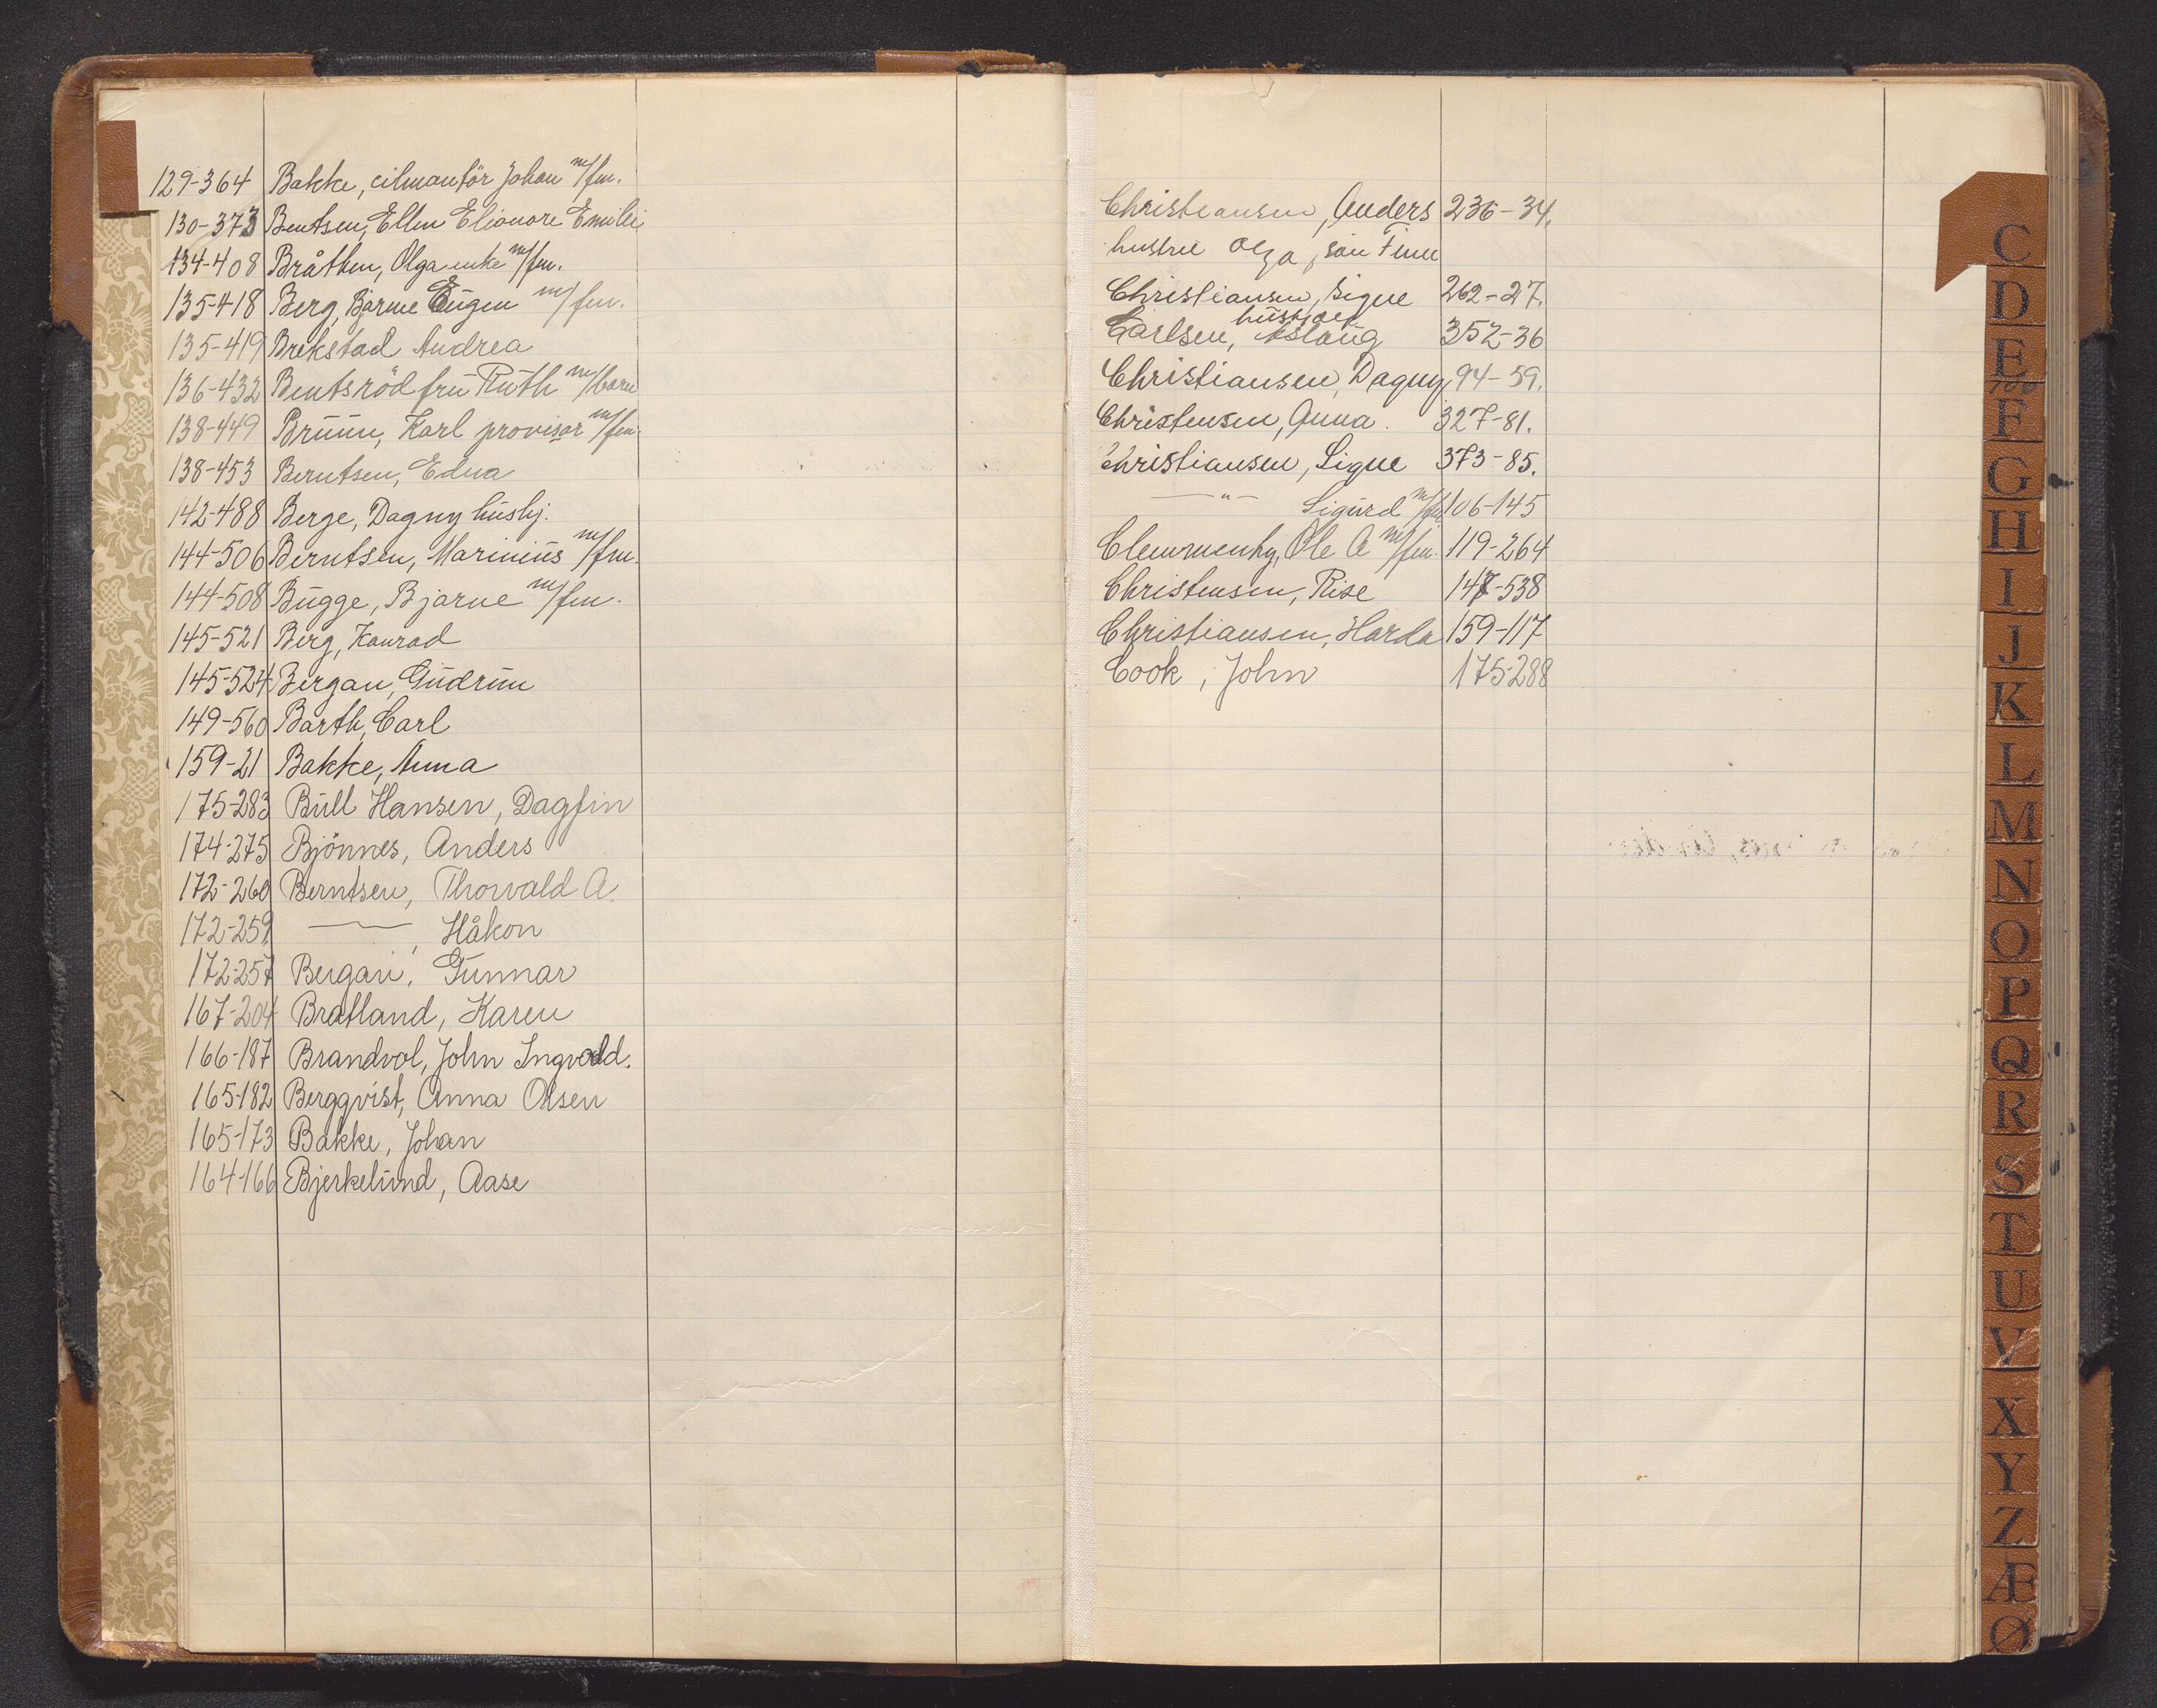 129-364 Bakke, eilmontör Johan m/fm.
130-373 Bentsen, Ellen Elionore Emilie
134-408 Bråthen, Olga enke m/fm.
135-418 Berg, Bjarne Eugen m/fm.
135-419 Brekstad Andrea
136-432 Bentsröd fru Ruth m/barn
138-449 Bruun, Karl provisor m/fm.
138-453 Berntsen, Edna
142-488 Berge, Dagny hushj.
144-506 Berntsen, Marinius m/fm.
144-508 Bugge, Bjarne m/fm.
145-521 Berg, Konrad
145-524 Bergan, Gudrun
149-560 Barth, Carl
159-21 Bakke, Anna
175-283 Bull Hansen, Dagfin
174-275 Bjönnes, Anders
172-260 Berntsen, Thorvald A.
172-259 —"— , Håkon
172-257 Bergan, Gunnar
167-204 Bratland, Karen
166-187 Brandvol, John Ingvald.
165-182 Bergqvist, Anna Olsen
165-173 Bakke, Johan
164-166 Bjerkelund, Aase
Christiansen, Anders 236-34.
hustru Olga, sön Finn
Christiansen, Signe 262-27.
hushjelp
Carlsen, Aslaug 352-36
Christiansen, Dagny 94-59.
Christensen, Anna. 327-81.
Christiansen, Signe 373-85.
—"— Sigurd m/fm 106-145
Ole A m/fm. 119-264
Christensen, Rise 147-538
Christiansen, Harda 159-117
Cook, John 175-288
C
D
E
F
G
H
I
J
K
L
M
N
O
P
Q
R
S
T
U
V
X
Y
Z
Æ
Ø